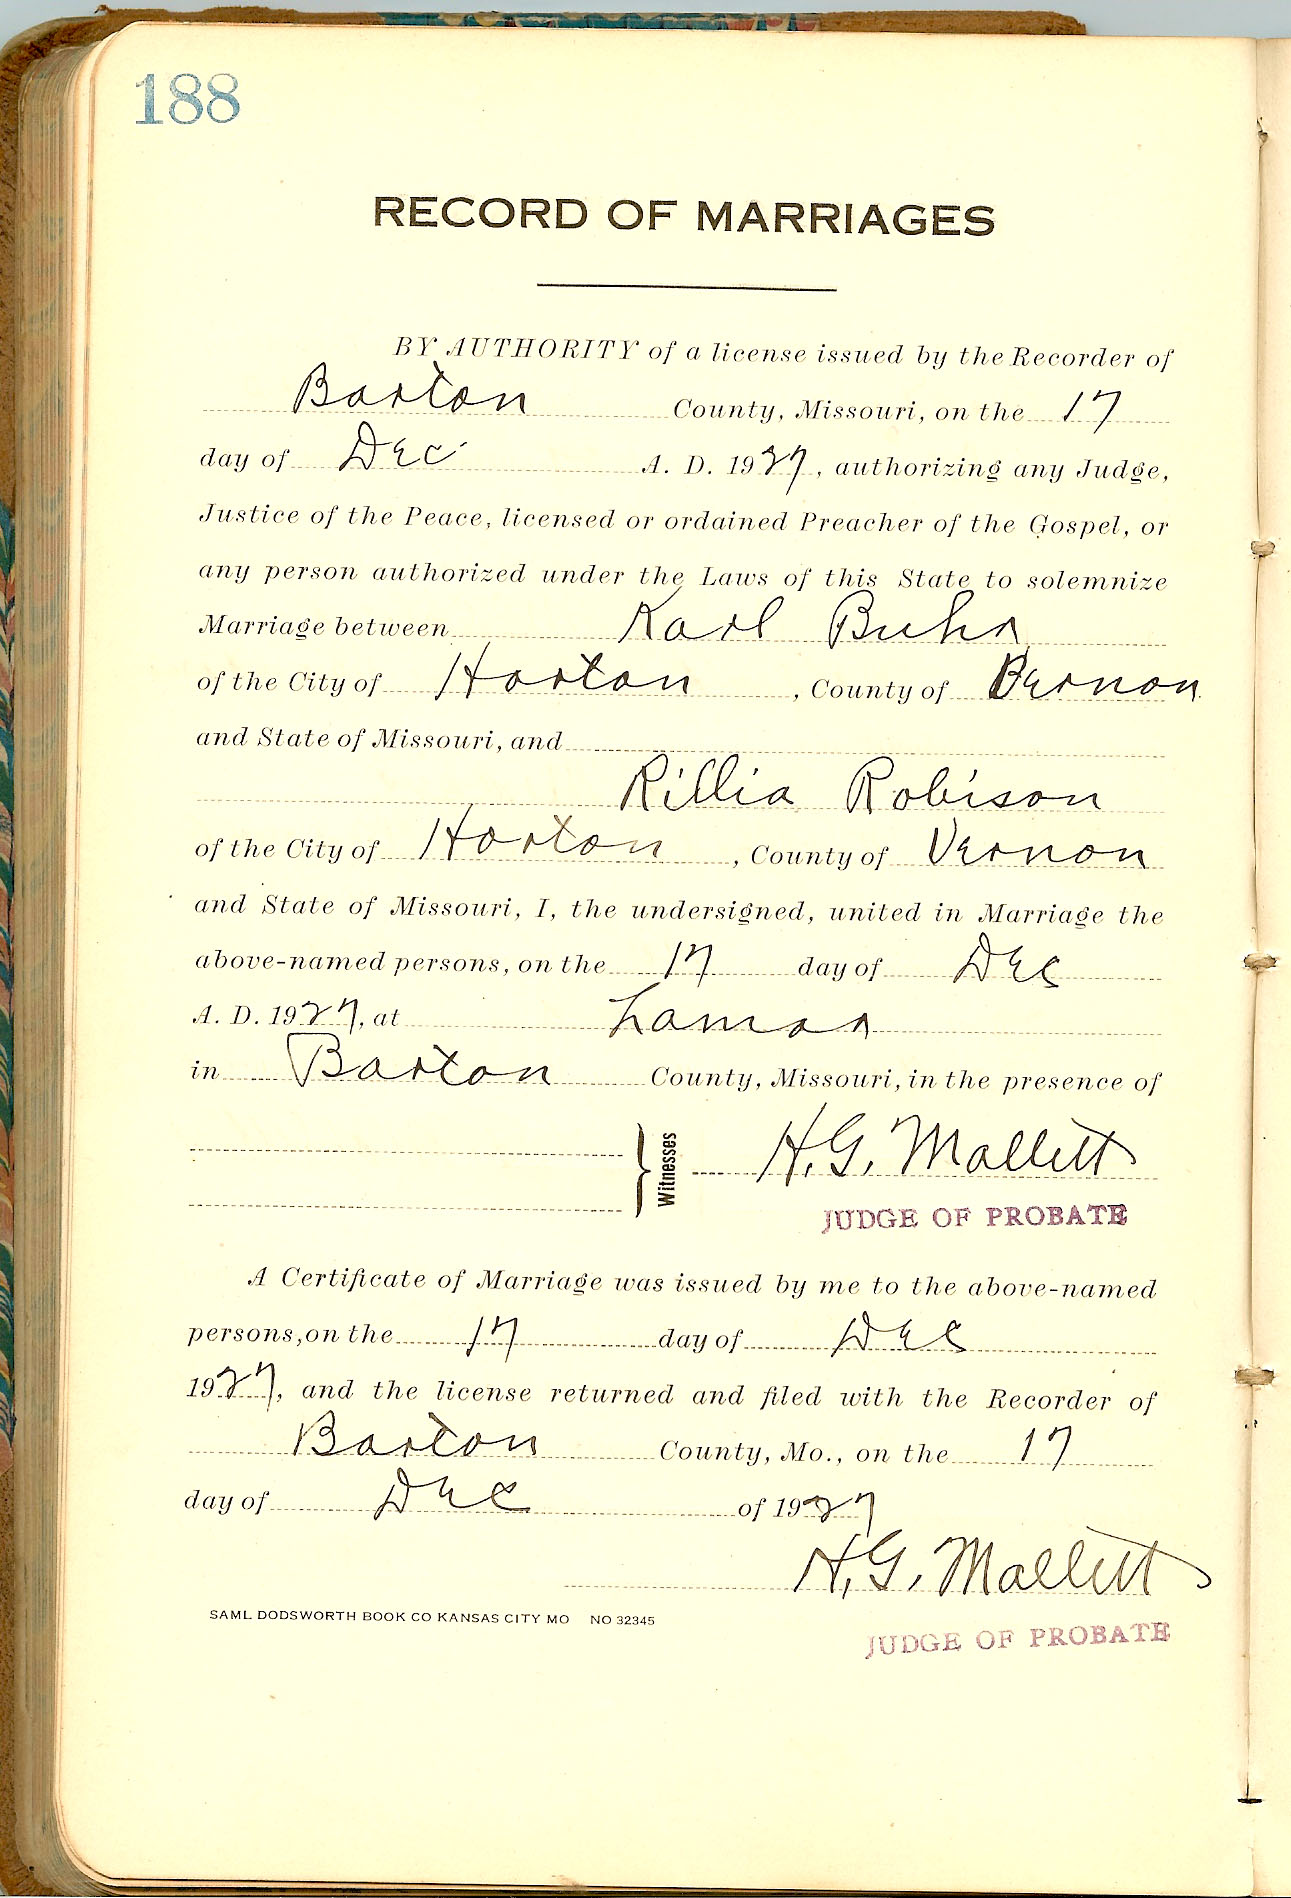 188
RECORD OF MARRIAGES
BY AUTHORITY of a license issued by the Recorder of
Barton County, Missouri, on the 17
day of Dec A. D. 1927, authorizing any Judge,
Justice of the Peace, licensed or ordained Preacher of the Gospel, or
any person authorized under the Laws of this State to solemnize
Marriage between Karl Buhr
of the City of Horton, County of Vernon
and State of Missouri, and
Rillia Robison
of the City of Horton, County of Vernon
and State of Missouri, I, the undersigned, united in Marriage the
above-named persons, on the 17 day of Dec
A. D. 1927, at Lamar
in Barton County, Missouri, in the presence of
Witnesses H. G. Mallitt
JUDGE OF PROBATE
A Certificate of Marriage was issued by me to the above-named
persons, on the 17 day of Dec
1927, and the license returned and filed with the Recorder of
Barton County, Mo., on the 17
day of Dec of 1927
H. G. Mallitt
SAML DODSWORTH BOOK CO KANSAS CITY MO NO 32345
JUDGE OF PROBATE